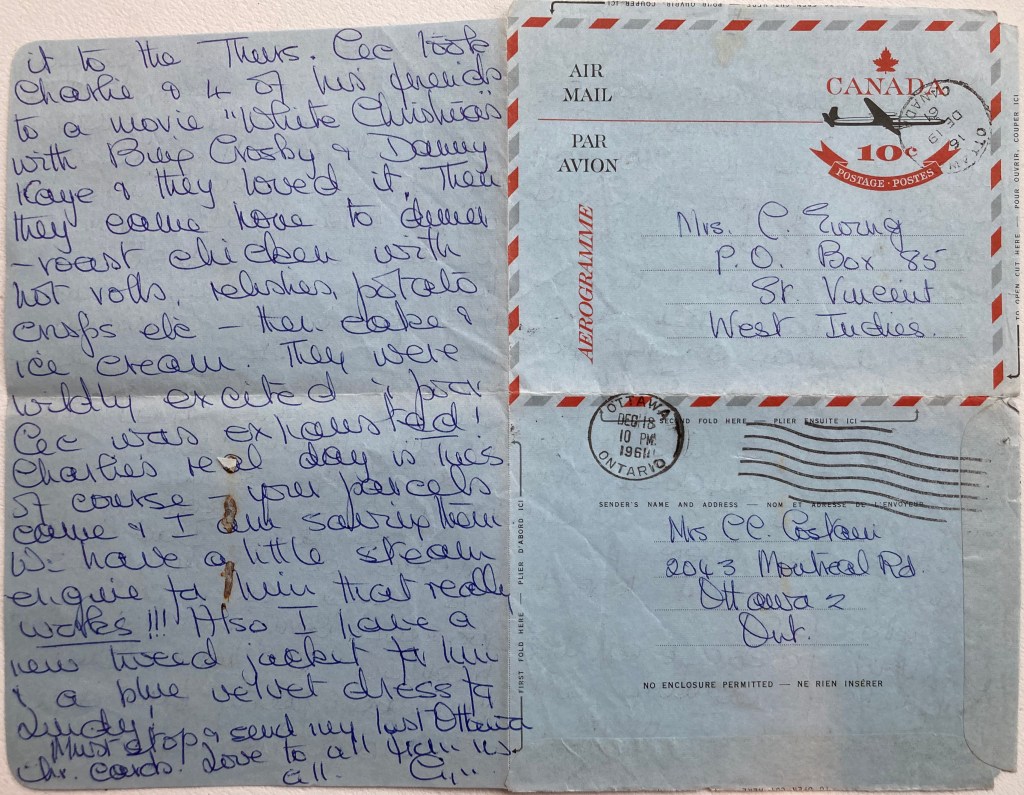 it to the Theirs. Cec took
Charlie & 4 of his friends
to a movie "White Christmas"
with Bing Crosby & Danny
Kaye & they loved it. Then
they came home to dinner
- roast chicken with
hot rolls, relishes, potato
crisps etc - then cake &
ice cream. They were
wildly excited & poor
Cec was exhausted!
Charlie's real day is Tues
of course - your parcels
came & I am saving them
We have a little steam
engine for him that really
works!!! Also I have a
new tweed jacket for him
& a blue velvet dress for
Lindy!
Must stop & send my last Ottawa
Chr. cards. Love to all from us
all.
AIR
MAIL
PAR
AVION
AEROGRAMME
CANADA
10¢
POSTAGE · POSTES
OTTAWA
CANADA
Mrs. C. Ewing
P.O. Box 85
St Vincent
West Indies.
TO OPEN CUT HERE — POUR OUVRIR, COUPER ICI
SECOND FOLD HERE — PLIER ENSUITE ICI
OTTAWA
DEC 18
10 PM
1961
ONTARIO
FIRST FOLD HERE — PLIER D'ABORD ICI
SENDER'S NAME AND ADDRESS — NOM ET ADRESSE DE L'ENVOYEUR
Mrs CC.
2043 Montreal Rd.
Ottawa 2
Ont.
NO ENCLOSURE PERMITTED — NE RIEN INSÉRER